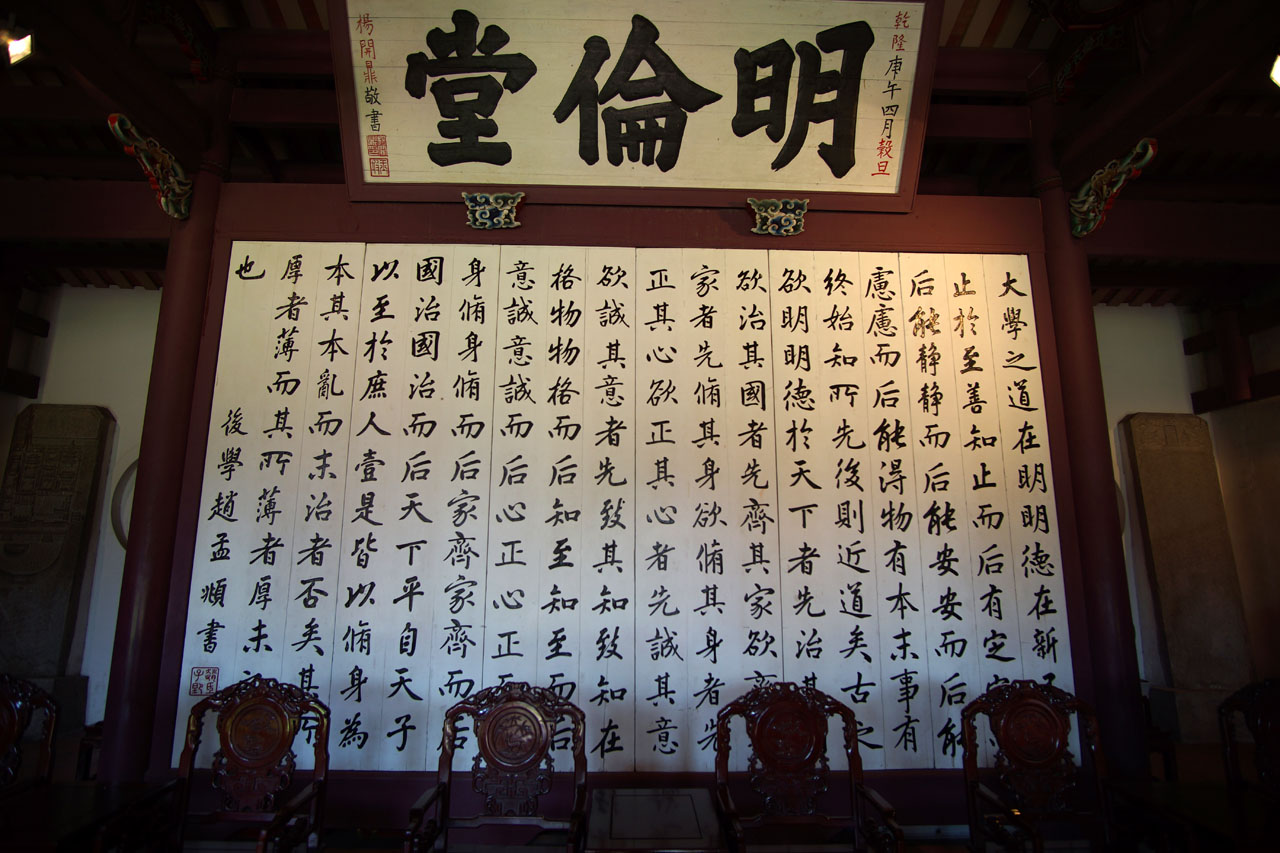 乾隆庚午四月穀旦
明倫堂
楊開鼎敬書
大學之道在明明德在新
止於至善知止而后有定
后能静静而后能安安而后能
慮慮而后能得物有本末事有
終始知所先後則近道矣古之
欲明明德於天下者先治其
欲治其國者先齊其家欲齊
家者先脩其身欲脩其身者先
正其心欲正其心者先誠其意
欲誠其意者先致其知致知在
格物物格而后知至知至而后
意誠意誠而后心正心正而
身脩身脩而后家齊家齊而后
國治國治而后天下平自天子
以至於庶人壹是皆以脩身為
本其本亂而末治者否矣其所
厚者薄而其所薄者厚未
也
後學趙孟頫書